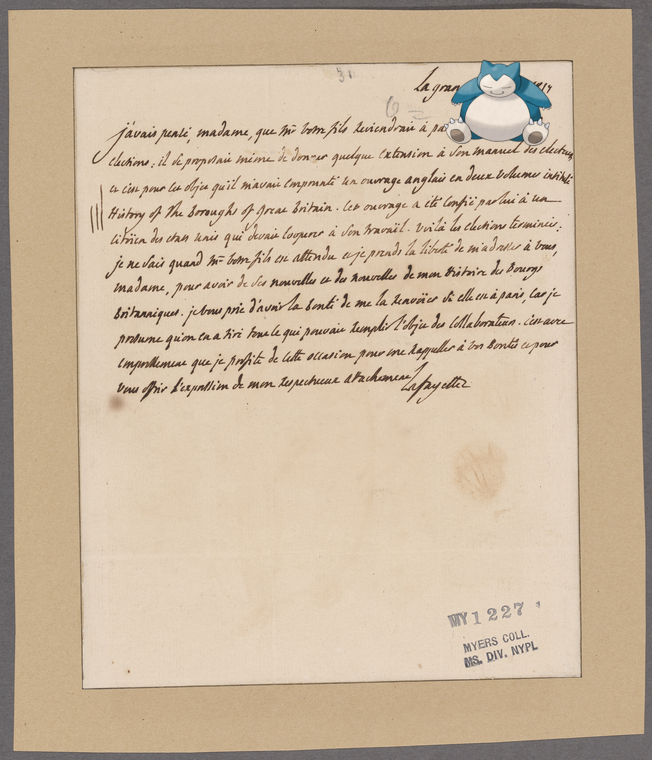 La gran
51
j'avais pensé, madame, que Mr votre fils reviendrait à pa
elections; il se proposait même de donner quelque extension à son manuel des electeurs
et c'est pour cet objet qu'il m'avait emprunté un ouvrage anglais en deux volumes intitulé
History of The Boroughs of great Britain. Cet ouvrage a été confié par lui à un
citoïen des etats unis qui devait cooperer à son travail. Voilà les elections terminées;
je ne sais quand Mr votre fils est attendu et je prends la liberté de m'adresser à vous,
madame, pour avoir de ses nouvelles et des nouvelles de mon histoire des Bourgs
Britanniques. je vous prie d'avoir la Bonté de me la renvoïer si elle est à paris, car je
presume qu'on en a tiré tout ce qui pouvait remplir l'objet des Collaborateurs. c'est avec
empressement que je profite de cette occasion pour me rappeller à vos Bontés et pour
vous offrir l'expression de mon respectueux attachement
Lafayette
MY 1227
MYERS COLL.
MS. DIV. NYPL